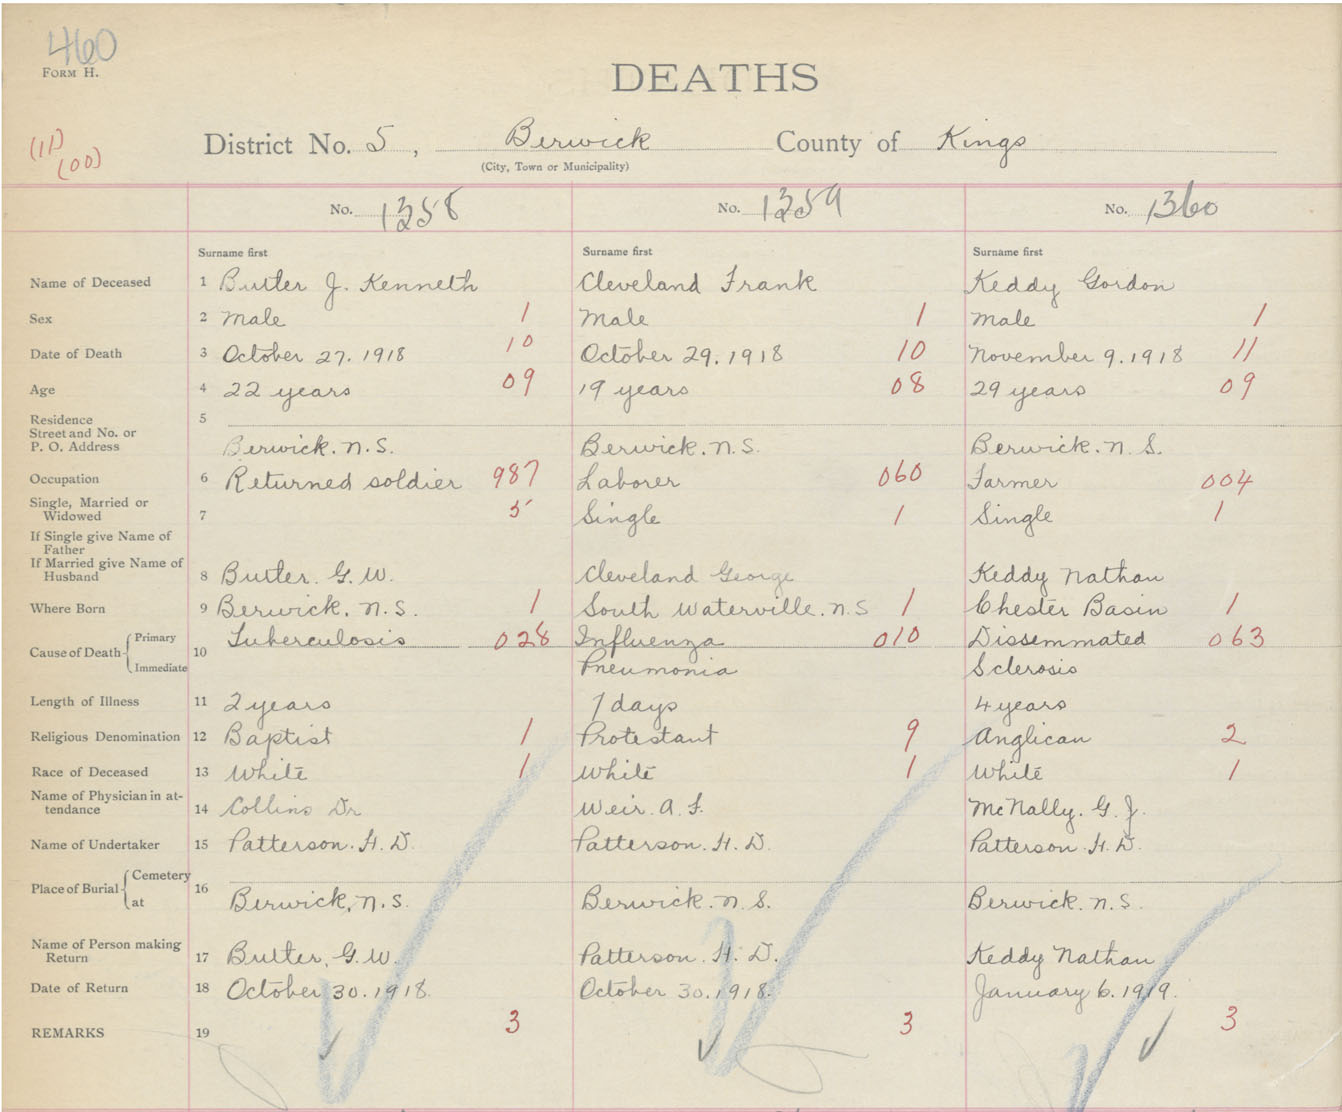 460
FORM H.
DEATHS
(11)
(00)
District No. 5, Berwick County of Kings
(City, Town or Municipality)
No. 1358 No. 1359 No. 1360
Surname first Surname first Surname first
Name of Deceased 1 Butler J. Kenneth Cleveland Frank Keddy Gordon
Sex 2 Male 1 Male 1 Male 1
Date of Death 3 October 27. 1918 10 October 29. 1918 10 November 9. 1918 11
Age 4 22 years 09 19 years 08 29 years 09
Residence 5
Street and No. or
P. O. Address Berwick. N.S. Berwick. N.S. Berwick. N.S.
Occupation 6 Returned soldier 987 Laborer 060 Farmer 004
Single, Married or
Widowed 7 5 Single 1 Single 1
If Single give Name of
Father
If Married give Name of
Husband 8 Butler. G. W. Cleveland George Keddy Nathan
Where Born 9 Berwick. N.S. 1 South Waterville. N.S 1 Chester Basin 1
Cause of Death Primary 10 Tuberculosis 028 Influenza 010 Dissemmated 063
Immediate Pneumonia Sclerosis
Length of Illness 11 2 years 7 days 4 years
Religious Denomination 12 Baptist 1 Protestant 9 Anglican 2
Race of Deceased 13 White 1 White 1 White 1
Name of Physician in at-
tendance 14 Collins Dr Weir. A. F. McNally. G. J.
Name of Undertaker 15 Patterson. H. D. Patterson. H. D. Patterson. H. D.
Place of Burial Cemetery 16
at Berwick, N.S. Berwick. N. S. Berwick. N.S.
Name of Person making
Return 17 Butler, G. W. Patterson. H. D. Keddy Nathan
Date of Return 18 October 30. 1918. October 30. 1918. January 6. 1919.
REMARKS 19 3 3 3